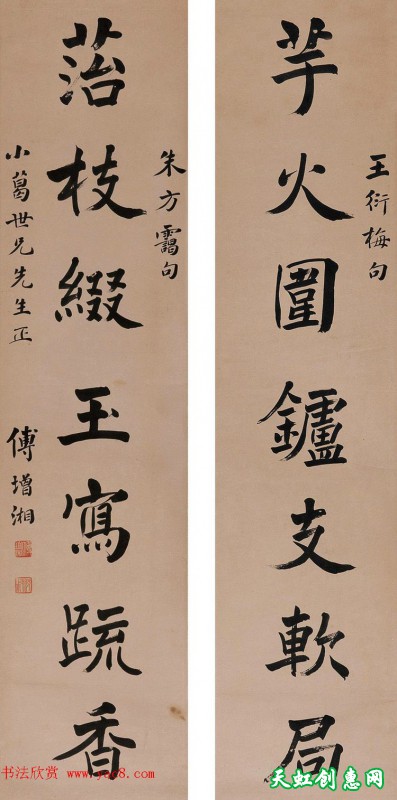 芋火圍鑪支軟局
王衍梅句
菭枝綴玉寫䟽香
朱方靄句
小葛世兄先生正
傅增湘
书法欣赏 www.yac8.com
天虹创惠网